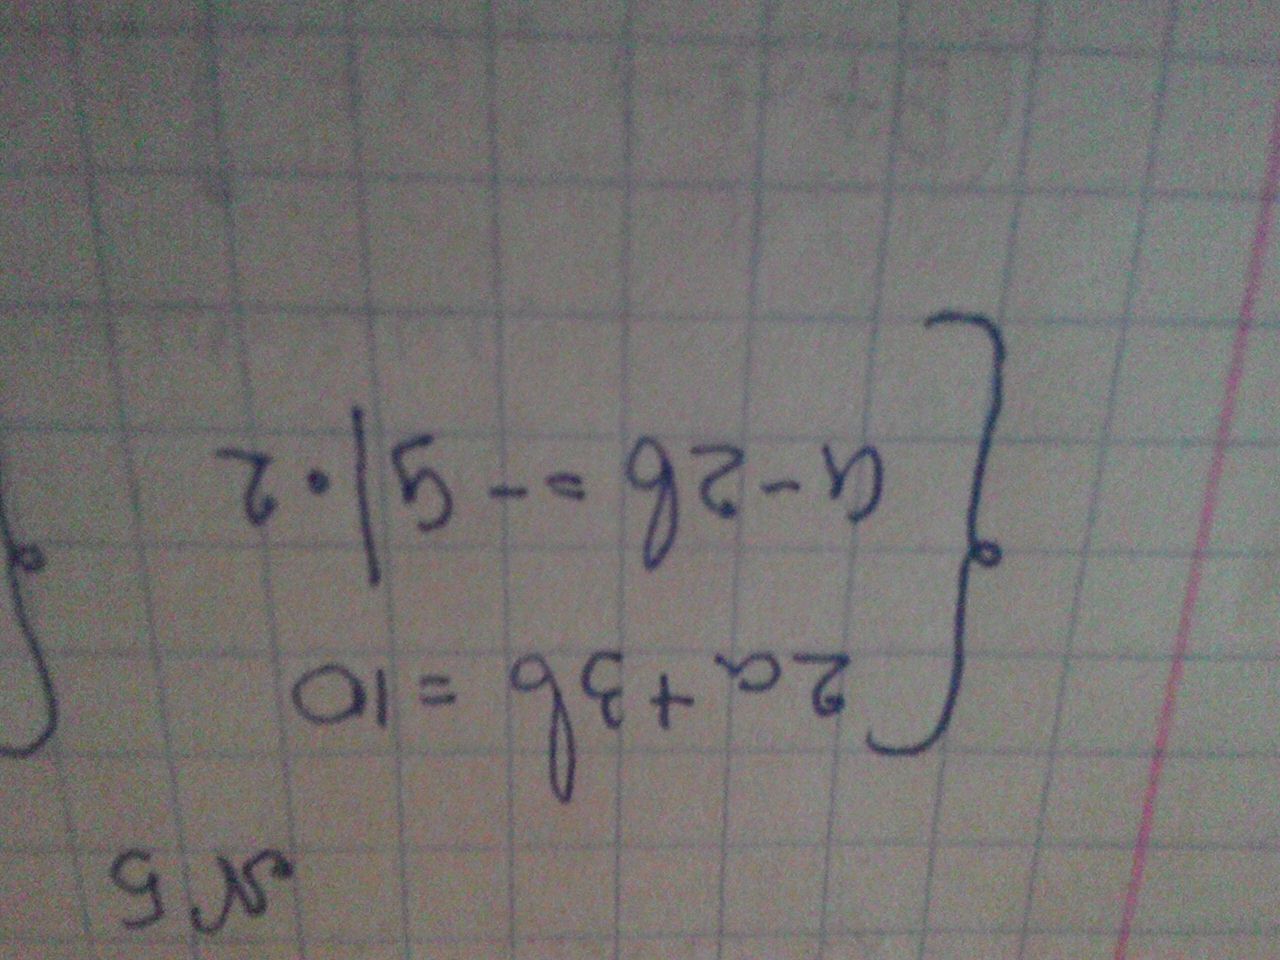 №5
2a+3b = 10
a-2b = -9 | · 2